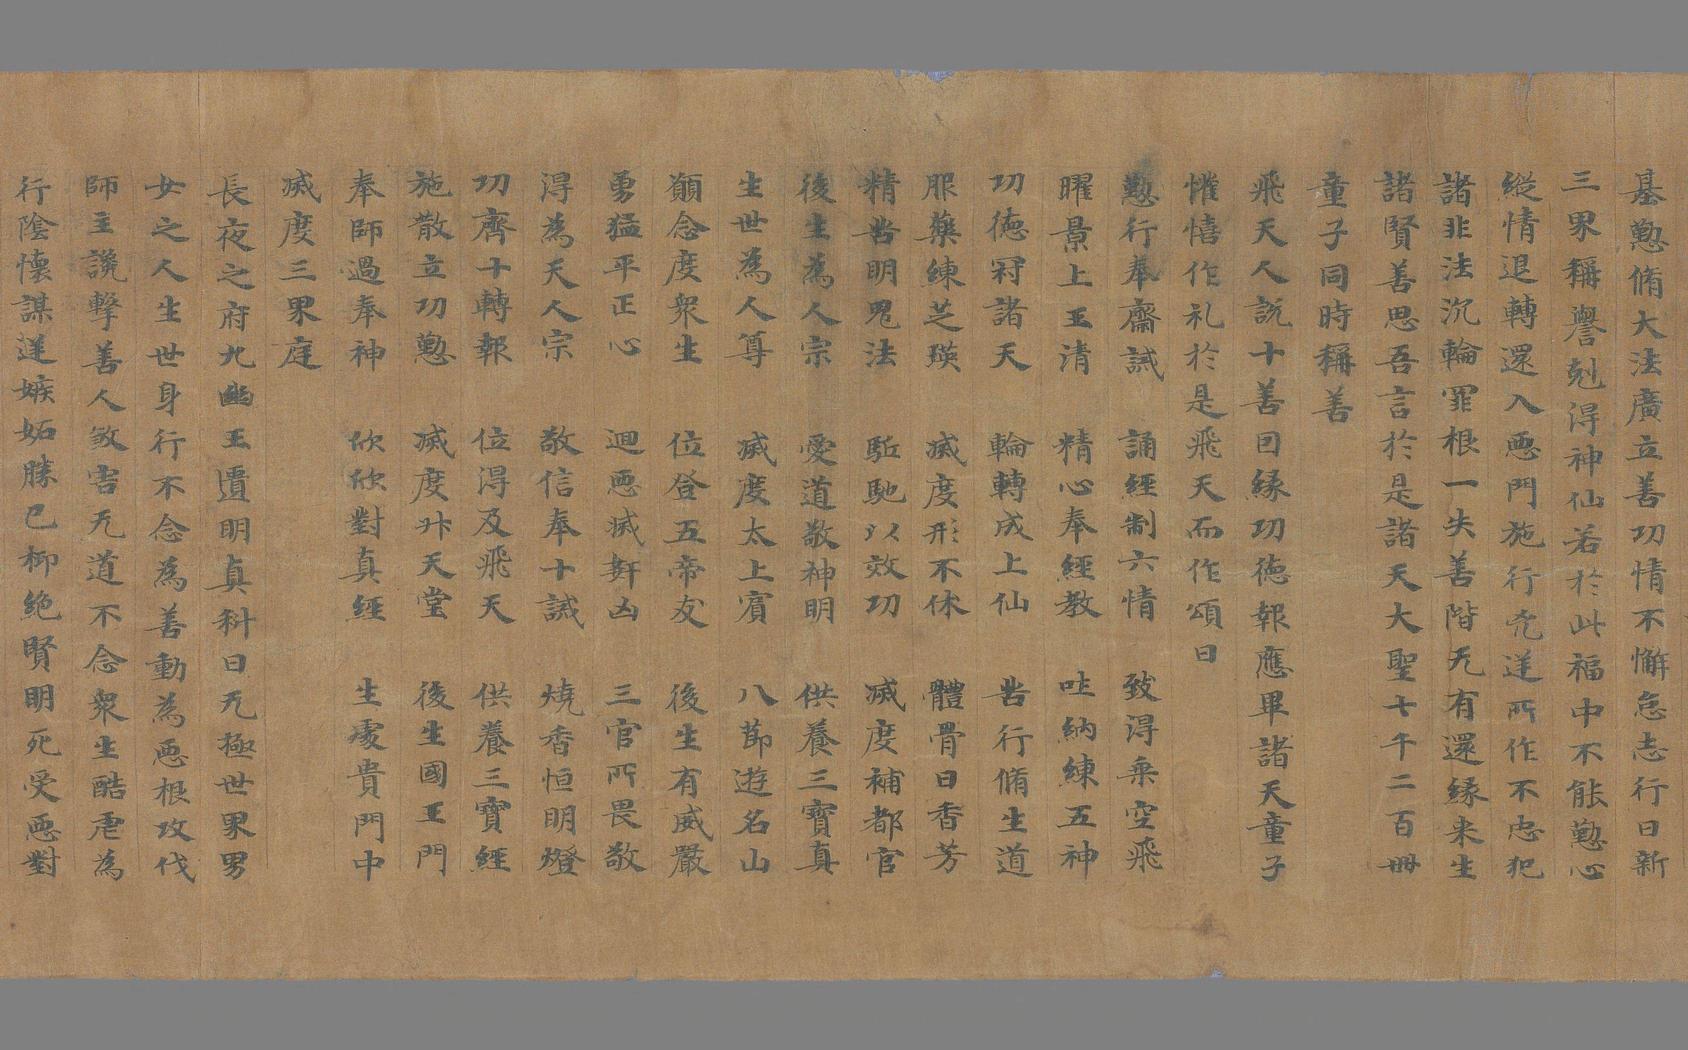 基懃脩大法廣立善功情不懈怠志行日新
三界稱譽剋得神仙若於此福中不能懃心
縱情退轉還入惡門施行充逆所作不忠犯
諸非法沉輪罪根一失善階无有還緣来生
諸賢善思吾言於是諸天大聖七千二百卌
童子同時稱善
飛天人説十善因緣功德報應畢諸天童子
懽憘作礼於是飛天而作頌曰
懃行奉齋誡　誦經制六情　致得乘空飛
曜景上玉清　精心奉經教　吐納練五神
功德冠諸天　輪轉成上仙　昔行脩生道
服藥練芝瑛　滅度形不休　體骨日香芳
精昔明鬼法　駈馳以效功　滅度補都官
後生為人宗　愛道敬神明　供養三寶真
生世為人尊　滅度太上賓　八節遊名山
願念度衆生　位登五帝友　後生有威嚴
勇猛平正心　迴惡滅姧凶　三官所畏敬
得為天人宗　敬信奉十誡　燒香恒明燈
功齊十轉報　位得及飛天　供養三寶經
施散立功懃　滅度升天堂　後生國王門
奉師過奉神　欣欣對真經　生處貴門中
滅度三界庭
長夜之府九幽玉匱明真科曰无極世界男
女之人生世身行不念為善動為惡根攻伐
師主讒擊善人欬害无道不念衆生酷虐為
行陰懷謀逆嫉妬勝己抑絶賢明死受惡對